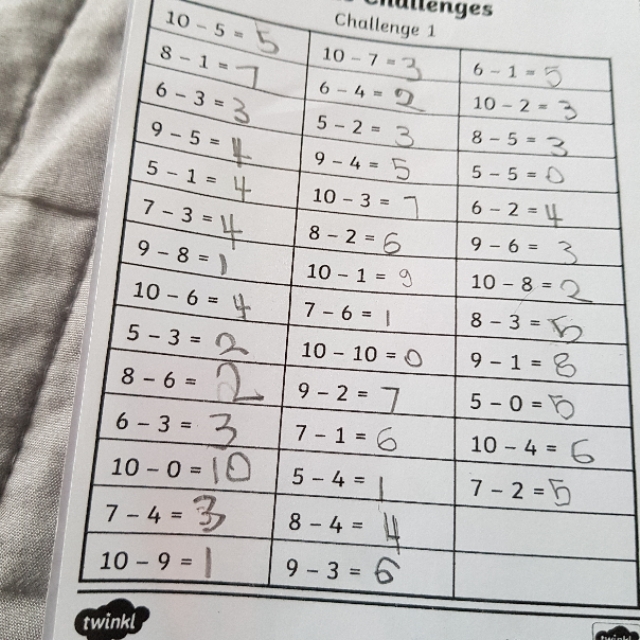 Challenges
Challenge 1
10 – 5 = 5
8 – 1 = 7
6 – 3 = 3
9 – 5 = 4
5 – 1 = 4
7 – 3 = 4
9 – 8 = 1
10 – 6 = 4
5 – 3 = 2
8 – 6 = 2
6 – 3 = 3
10 – 0 = 10
7 – 4 = 3
10 – 9 = 1
10 – 7 = 3
6 – 4 = 2
5 – 2 = 3
9 – 4 = 5
10 – 3 = 7
8 – 2 = 6
10 – 1 = 9
7 – 6 = 1
10 – 10 = 0
9 – 2 = 7
7 – 1 = 6
5 – 4 = 1
8 – 4 = 4
9 – 3 = 6
6 – 1 = 5
10 – 2 = 3
8 – 5 = 3
5 – 5 = 0
6 – 2 = 4
9 – 6 = 3
10 – 8 = 2
8 – 3 = 5
9 – 1 = 8
5 – 0 = 5
10 – 4 = 6
7 – 2 = 5
twinkl
twinkl